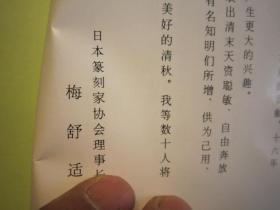 十六年
生更大的兴趣。
出清末天资聪敏、自由奔放
有名知明们所增、供为己用、
美好的清秋。我等数十人将
日本篆刻家协会理事长
梅舒适